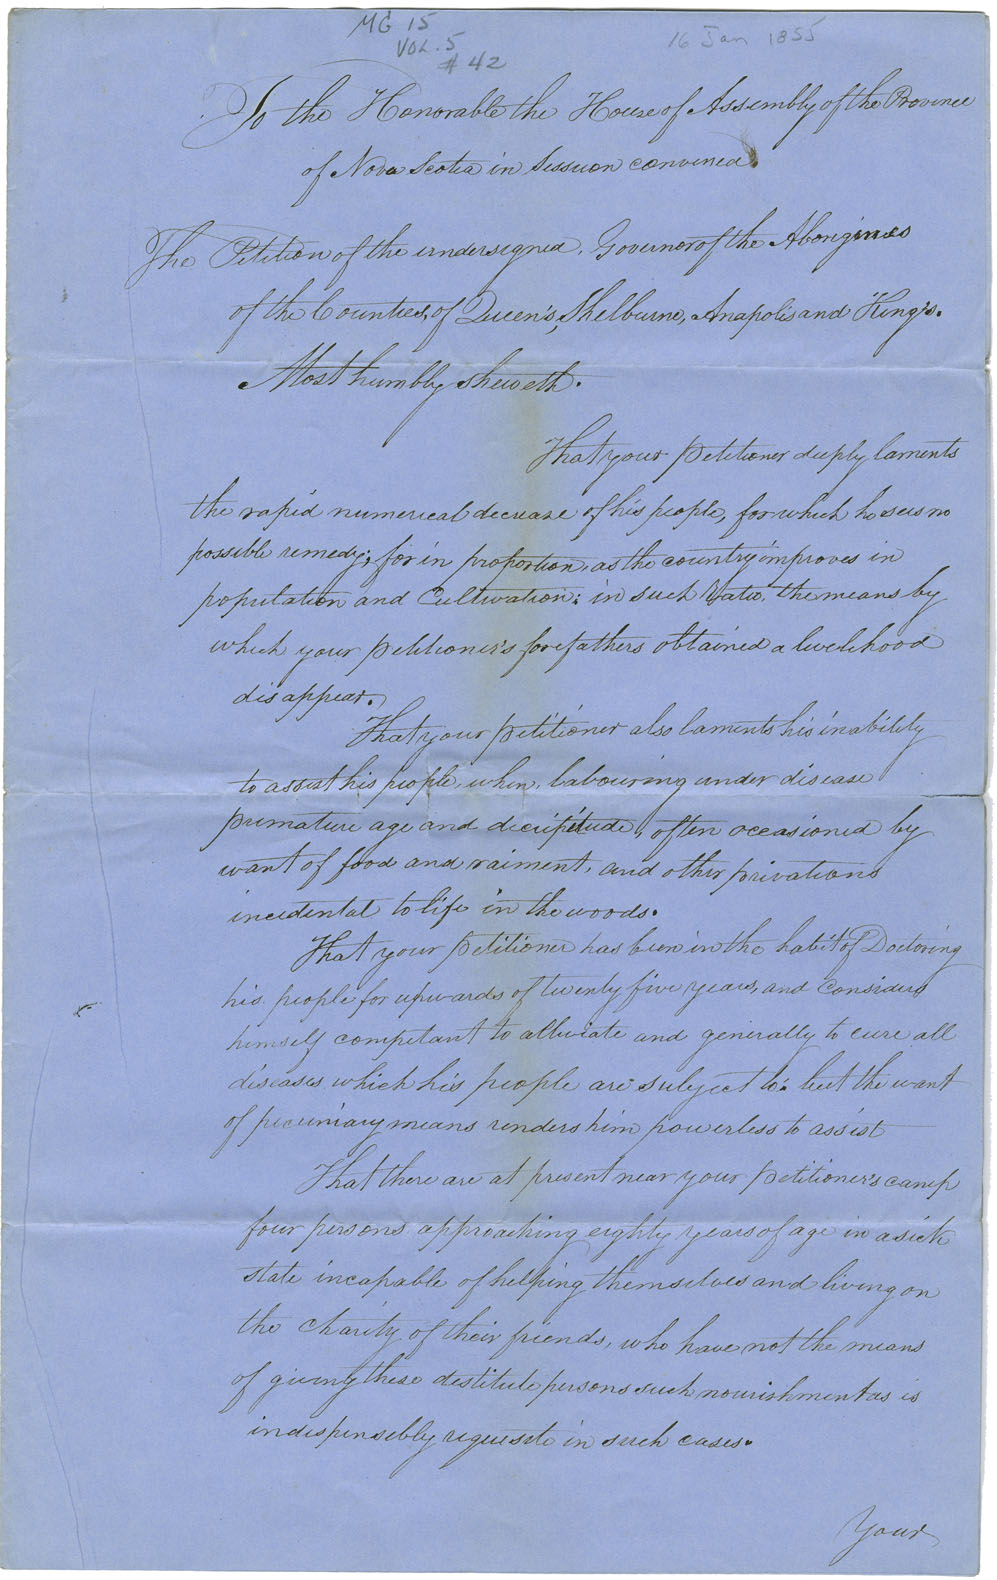 MG 15
VOL. 5
# 42
16 Jan 1855
To the Honorable the House of Assembly of the Province
of Nova Scotia in Session convened.
The Petition of the undersigned, Governor of the Aborigines
of the Counties, of Queen's, Shelburne, Anapolis and King's.
Most humbly sheweth.
That your petitioner deeply laments
the rapid numerical decrease of his people, for which he sees no
possible remedy; for in proportion, as the country improves in
population and Cultivation: in such ratio, the means by
which your petitioner's forefathers obtained a livelihood
disappear.
That your petitioner also laments his inability
to assist his people, when, labouring under disease
premature age and decripitude, often occasioned by
want of food and raiment, and other privations
incidental to life in the woods.
That your petitioner has been in the habit of Doctoring
his people for upwards of twenty five years, and considers
himself competant to alleviate and generally to cure all
diseases which his people are subject to: but the want
of pecuniary means renders him powerless to assist
That there are at present near your petitioner's camp
four persons approaching eighty years of age in a sick
state incapable of helping themselves and living on
the charity of their friends, who have not the means
of giving these destitute persons such nourishment as is
indispensibly requisite in such cases.
Your